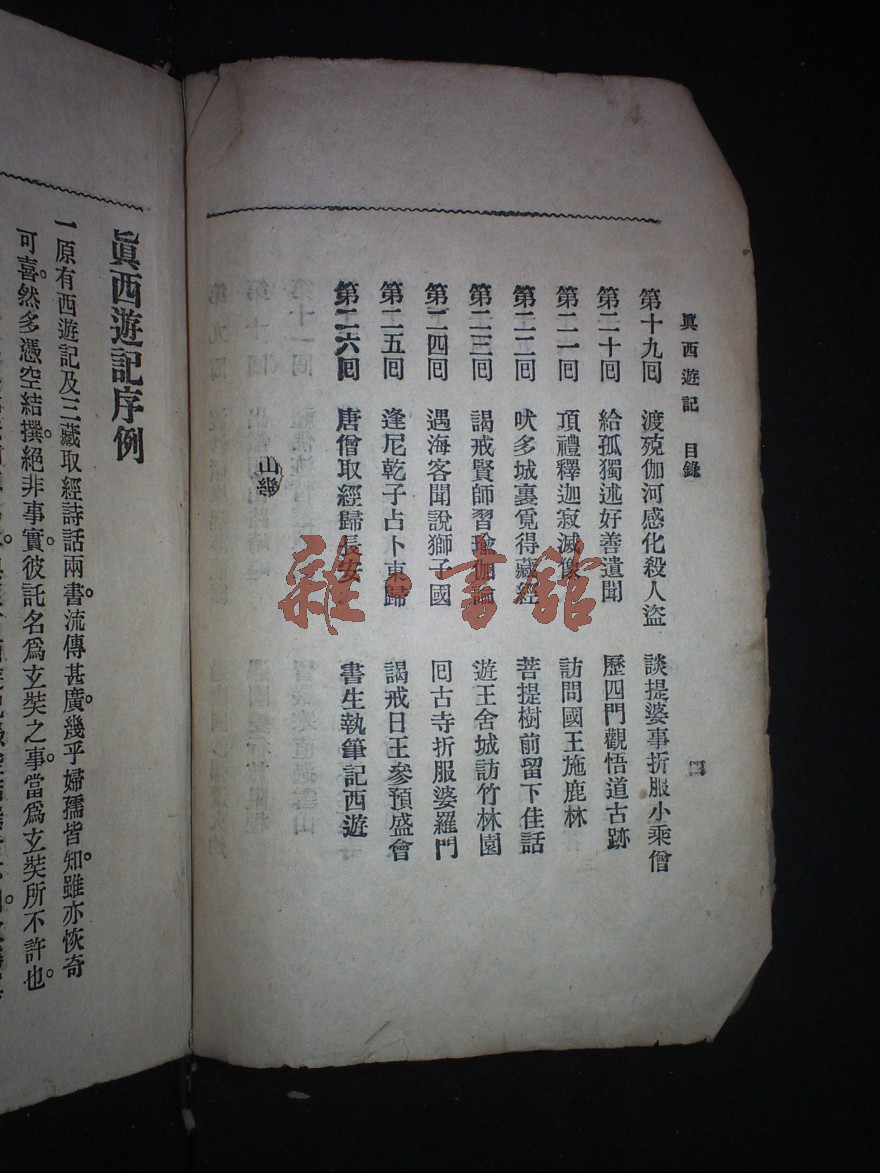 眞西遊記　目錄
四
第十九回　渡殑伽河感化殺人盜　談提婆事折服小乘僧
第二十回　給孤獨述好善遺聞　歷四門觀悟道古跡
第二一回　頂禮釋迦寂滅像　訪問國王施鹿林
第二二回　吠多城裏覓得藏經　菩提樹前留下佳話
第二三回　謁戒賢師習瑜伽論　遊王舍城訪竹林園
第二四回　遇海客聞說獅子國　回古寺折服婆羅門
第二五回　逢尼乾子占卜東歸　謁戒日王參預盛會
第二六回　唐僧取經歸長安　書生執筆記西遊
雜·書館
眞西遊記序例
一原有西遊記及三藏取經詩話兩書。流傳甚廣。幾乎婦孺皆知。雖亦恢奇
可喜。然多憑空結撰。絕非事實。彼託名爲玄奘之事。當爲玄奘所不許也。